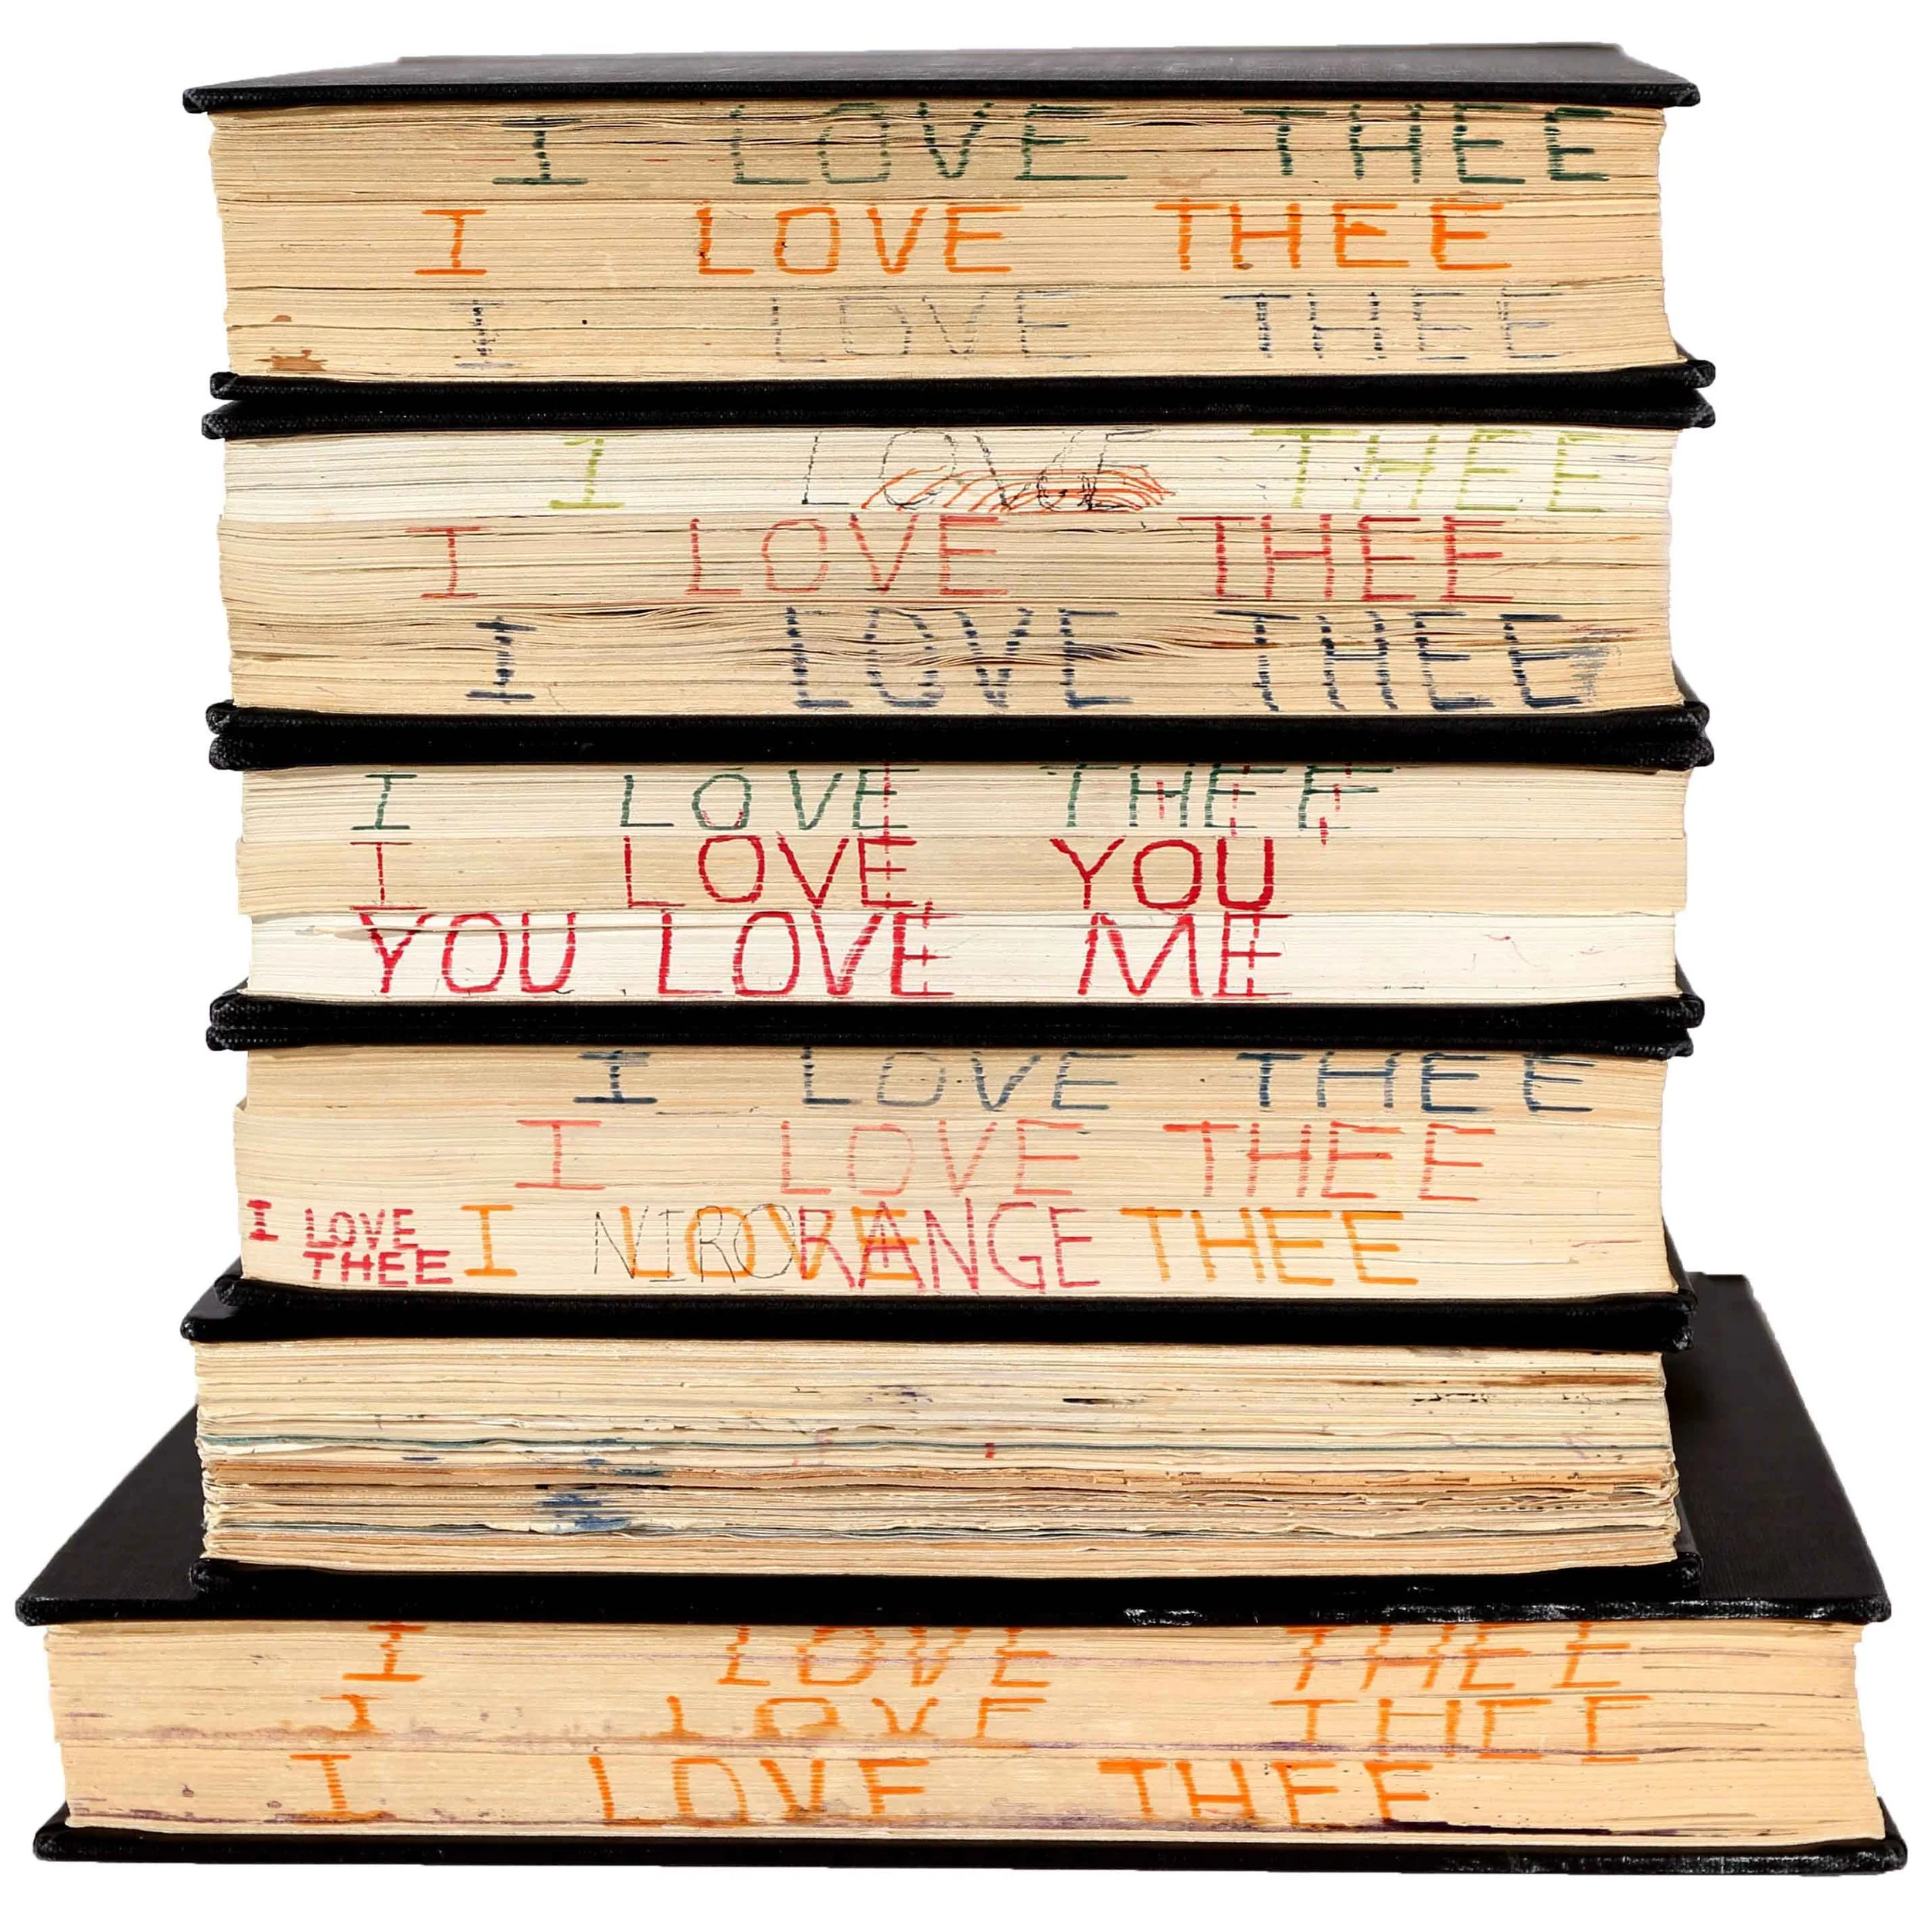 I LOVE THEE
I LOVE THEE
I LOVE THEE
I LOVE THEE
I LOVE THEE
I LOVE THEE
I LOVE THEE
I LOVE YOU
YOU LOVE ME
I LOVE THEE
I LOVE THEE
I LOVE THEE
I LOVE THEE
NIRO
RANGE
I LOVE THEE
I LOVE THEE
I LOVE THEE